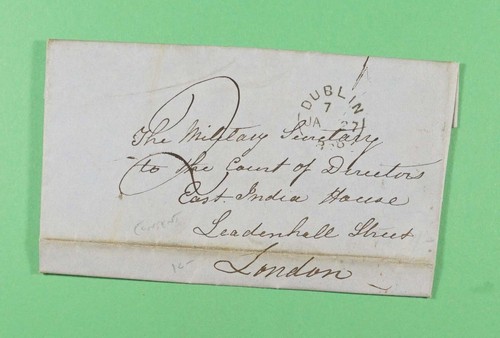 DUBLIN
7
JA 27
The Military Secretary
to the Court of Directors
East India House
Leadenhall Street
London